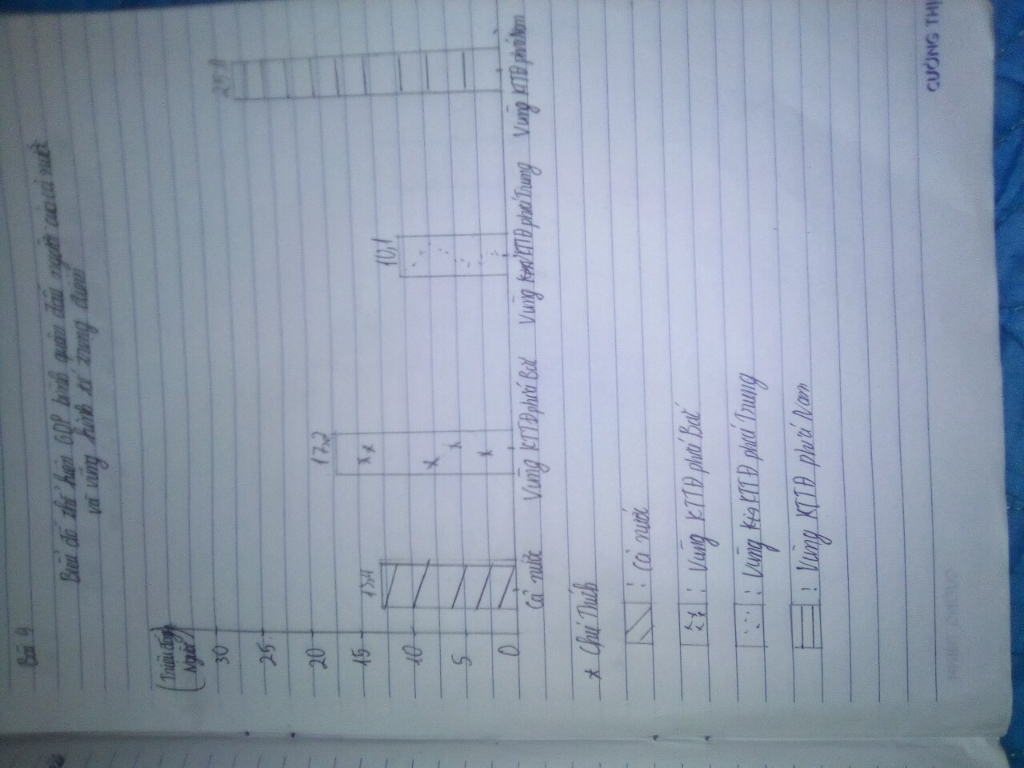 Bài 4
Biểu đồ thể hiện GDP bình quân đầu người của cả nước
và vùng kinh tế trọng điểm
(Triệu đồng/
Người)
30
25
20
15
10
5
0
13,4
17,2
10,1
25,9
Cả nước
Vùng KTTĐ phía Bắc
Vùng KTTĐ phía Trung
Vùng KTTĐ phía Nam
* Chú Thích
: Cả nước
: Vùng KTTĐ phía Bắc
: Vùng KTTĐ phía Trung
: Vùng KTTĐ phía Nam
CƯỜNG THỊ